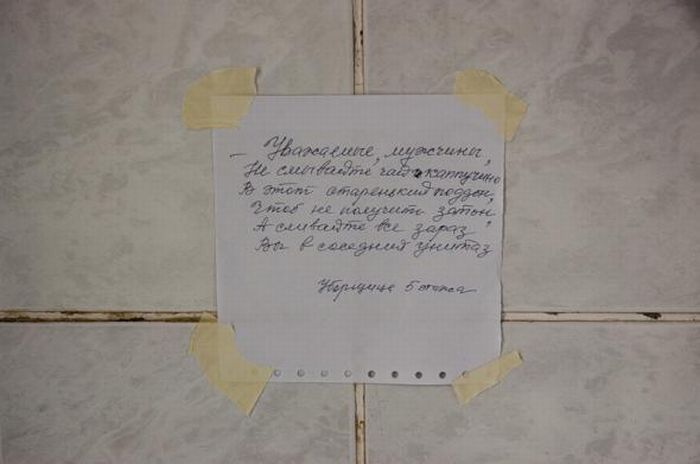 – Уважаемые, мужчины,
Не смывайте чай и каппучино
В этот старенький поддон,
Чтоб не получить затоп
А сливайте все зараз
Вы в соседний унитаз
Уборщица 5 этажа